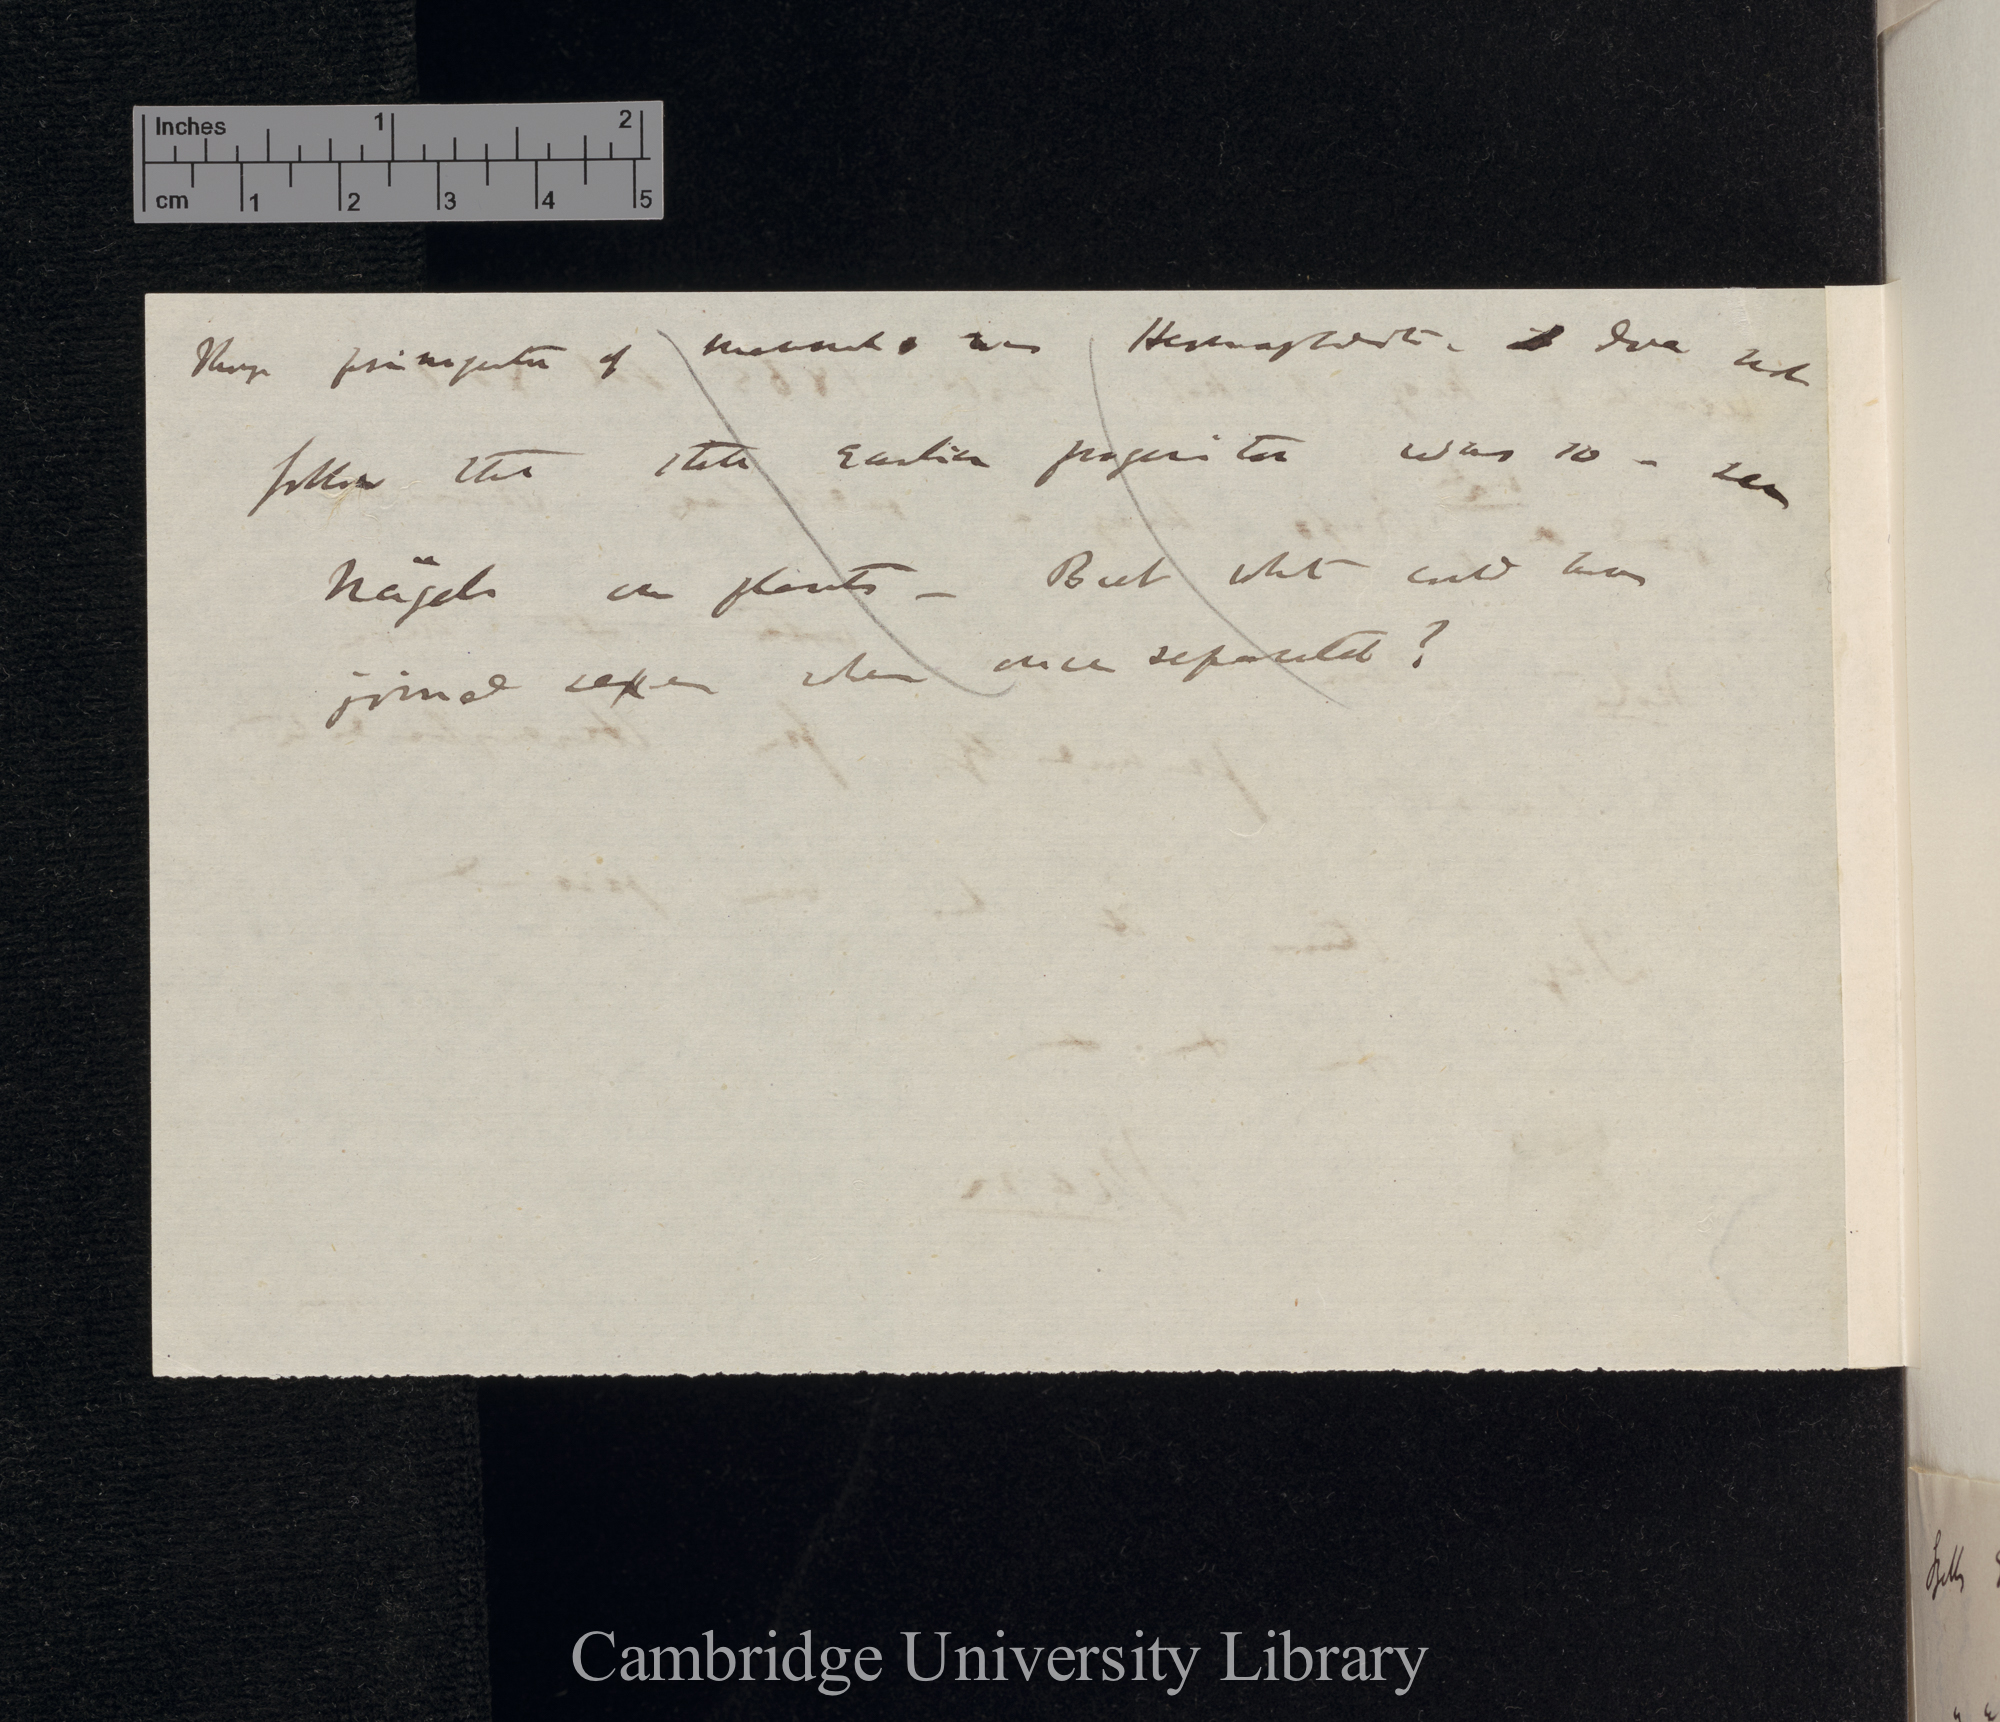 Inches 1 2
cm 1 2 3 4 5
Though primogenitor of mammals was Hermaphrodite. does not
follow that still earlier progenitor was so – see
Nägeli on plants – But what could have
joined sexes when once separated?
Cambridge University Library